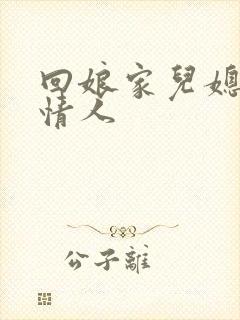 回娘家兒媳
情人
公子離